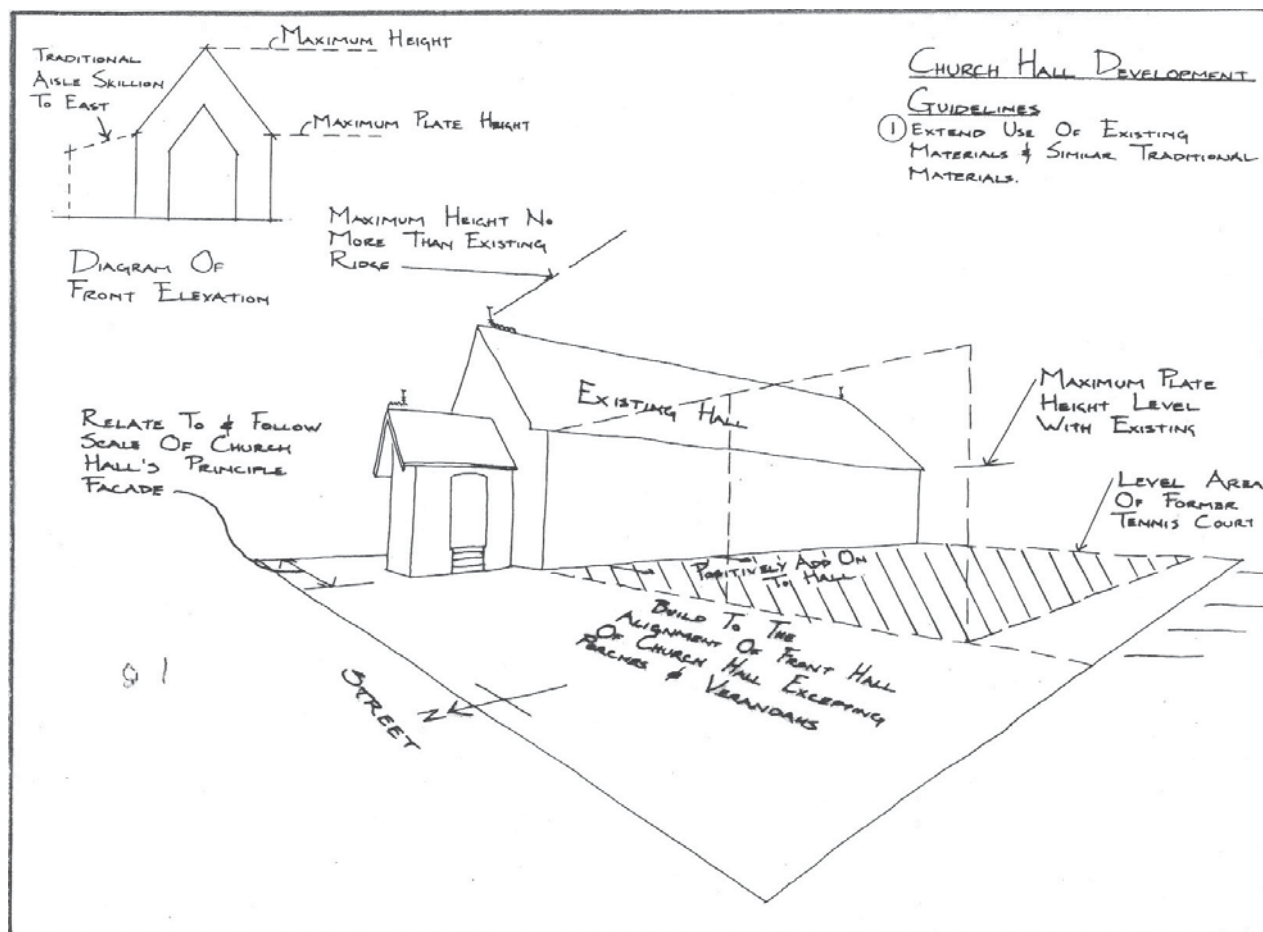 MAXIMUM HEIGHT
TRADITIONAL
AISLE SKILLION
TO EAST
MAXIMUM PLATE HEIGHT
DIAGRAM OF
FRONT ELEVATION
CHURCH HALL DEVELOPMENT
GUIDELINES
1 EXTEND USE OF EXISTING
MATERIALS & SIMILAR TRADITIONAL
MATERIALS.
MAXIMUM HEIGHT NO
MORE THAN EXISTING
RIDGE
EXISTING HALL
MAXIMUM PLATE
HEIGHT LEVEL
WITH EXISTING
RELATE TO & FOLLOW
SCALE OF CHURCH
HALL'S PRINCIPLE
FACADE
LEVEL AREA
OF FORMER
TENNIS COURT
POSITIVELY ADD ON
TO HALL
BUILD TO THE
ALIGNMENT OF FRONT HALL
OF CHURCH HALL EXCEPTING
PORCHES & VERANDAHS
STREET
N